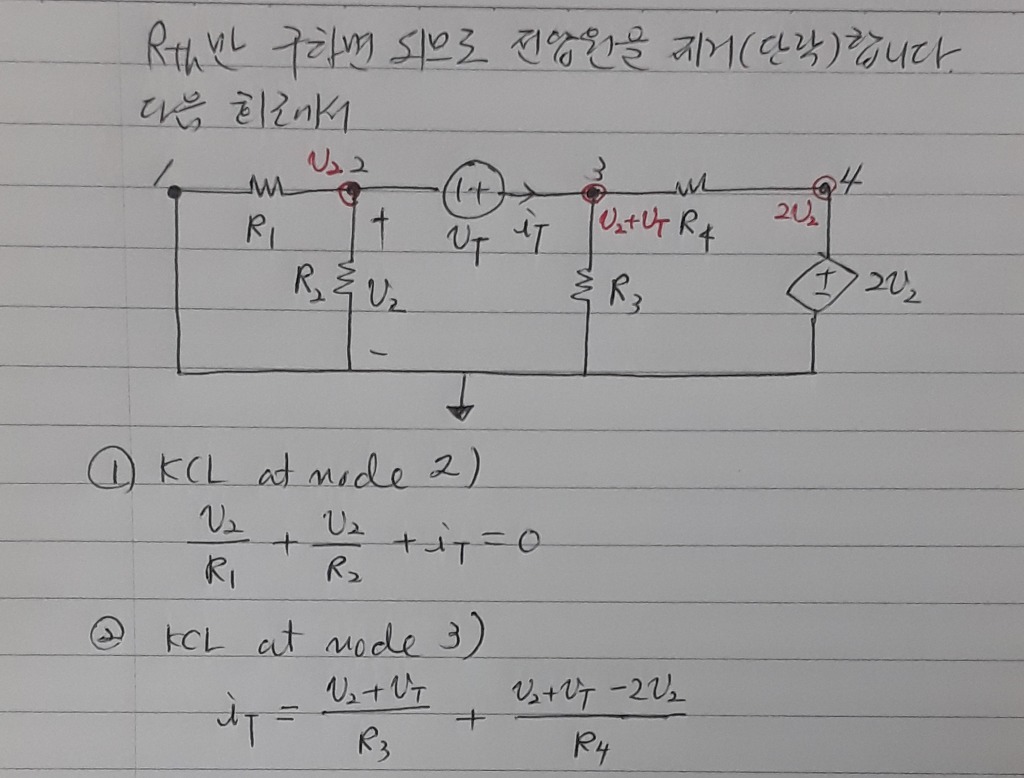 Rth만 구하면 되므로 전압원을 제거(단락)합니다.
다음 회로에서
1 R₁ v₂ 2 - + v_T i_T 3 v₂+v_T R₄ 2v₂ 4
R₂ + v₂ - R₃ + - 2v₂
① KCL at node 2)
v₂/R₁ + v₂/R₂ + i_T = 0
② KCL at node 3)
i_T = (v₂+v_T)/R₃ + (v₂+v_T-2v₂)/R₄